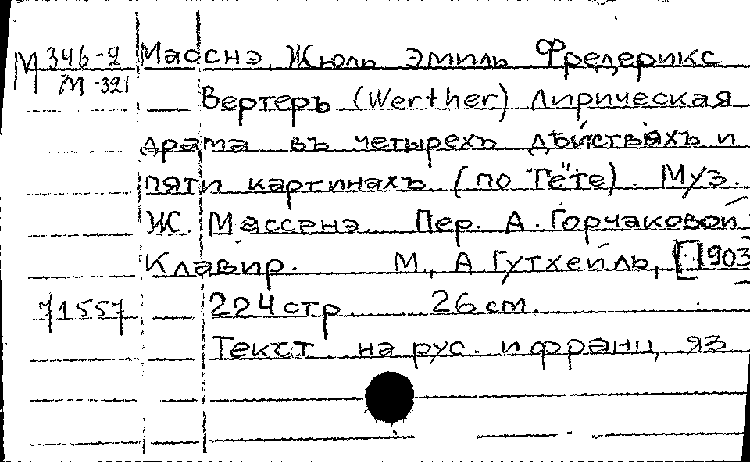 М 346-2 Масснэ, Жюль Эмиль Фредерикс
М-321 Вертеръ (Werther) Лирическая
драма въ четырехъ дѣйствяхъ и
пяти картинахъ (по Гёте). Муз.
Ж. Массенэ Пер. А. Горчаковой
Клавир. М., А Гутхейль, [1903
71557 224 стр 26 см.
Текст на рус. и франц, яз